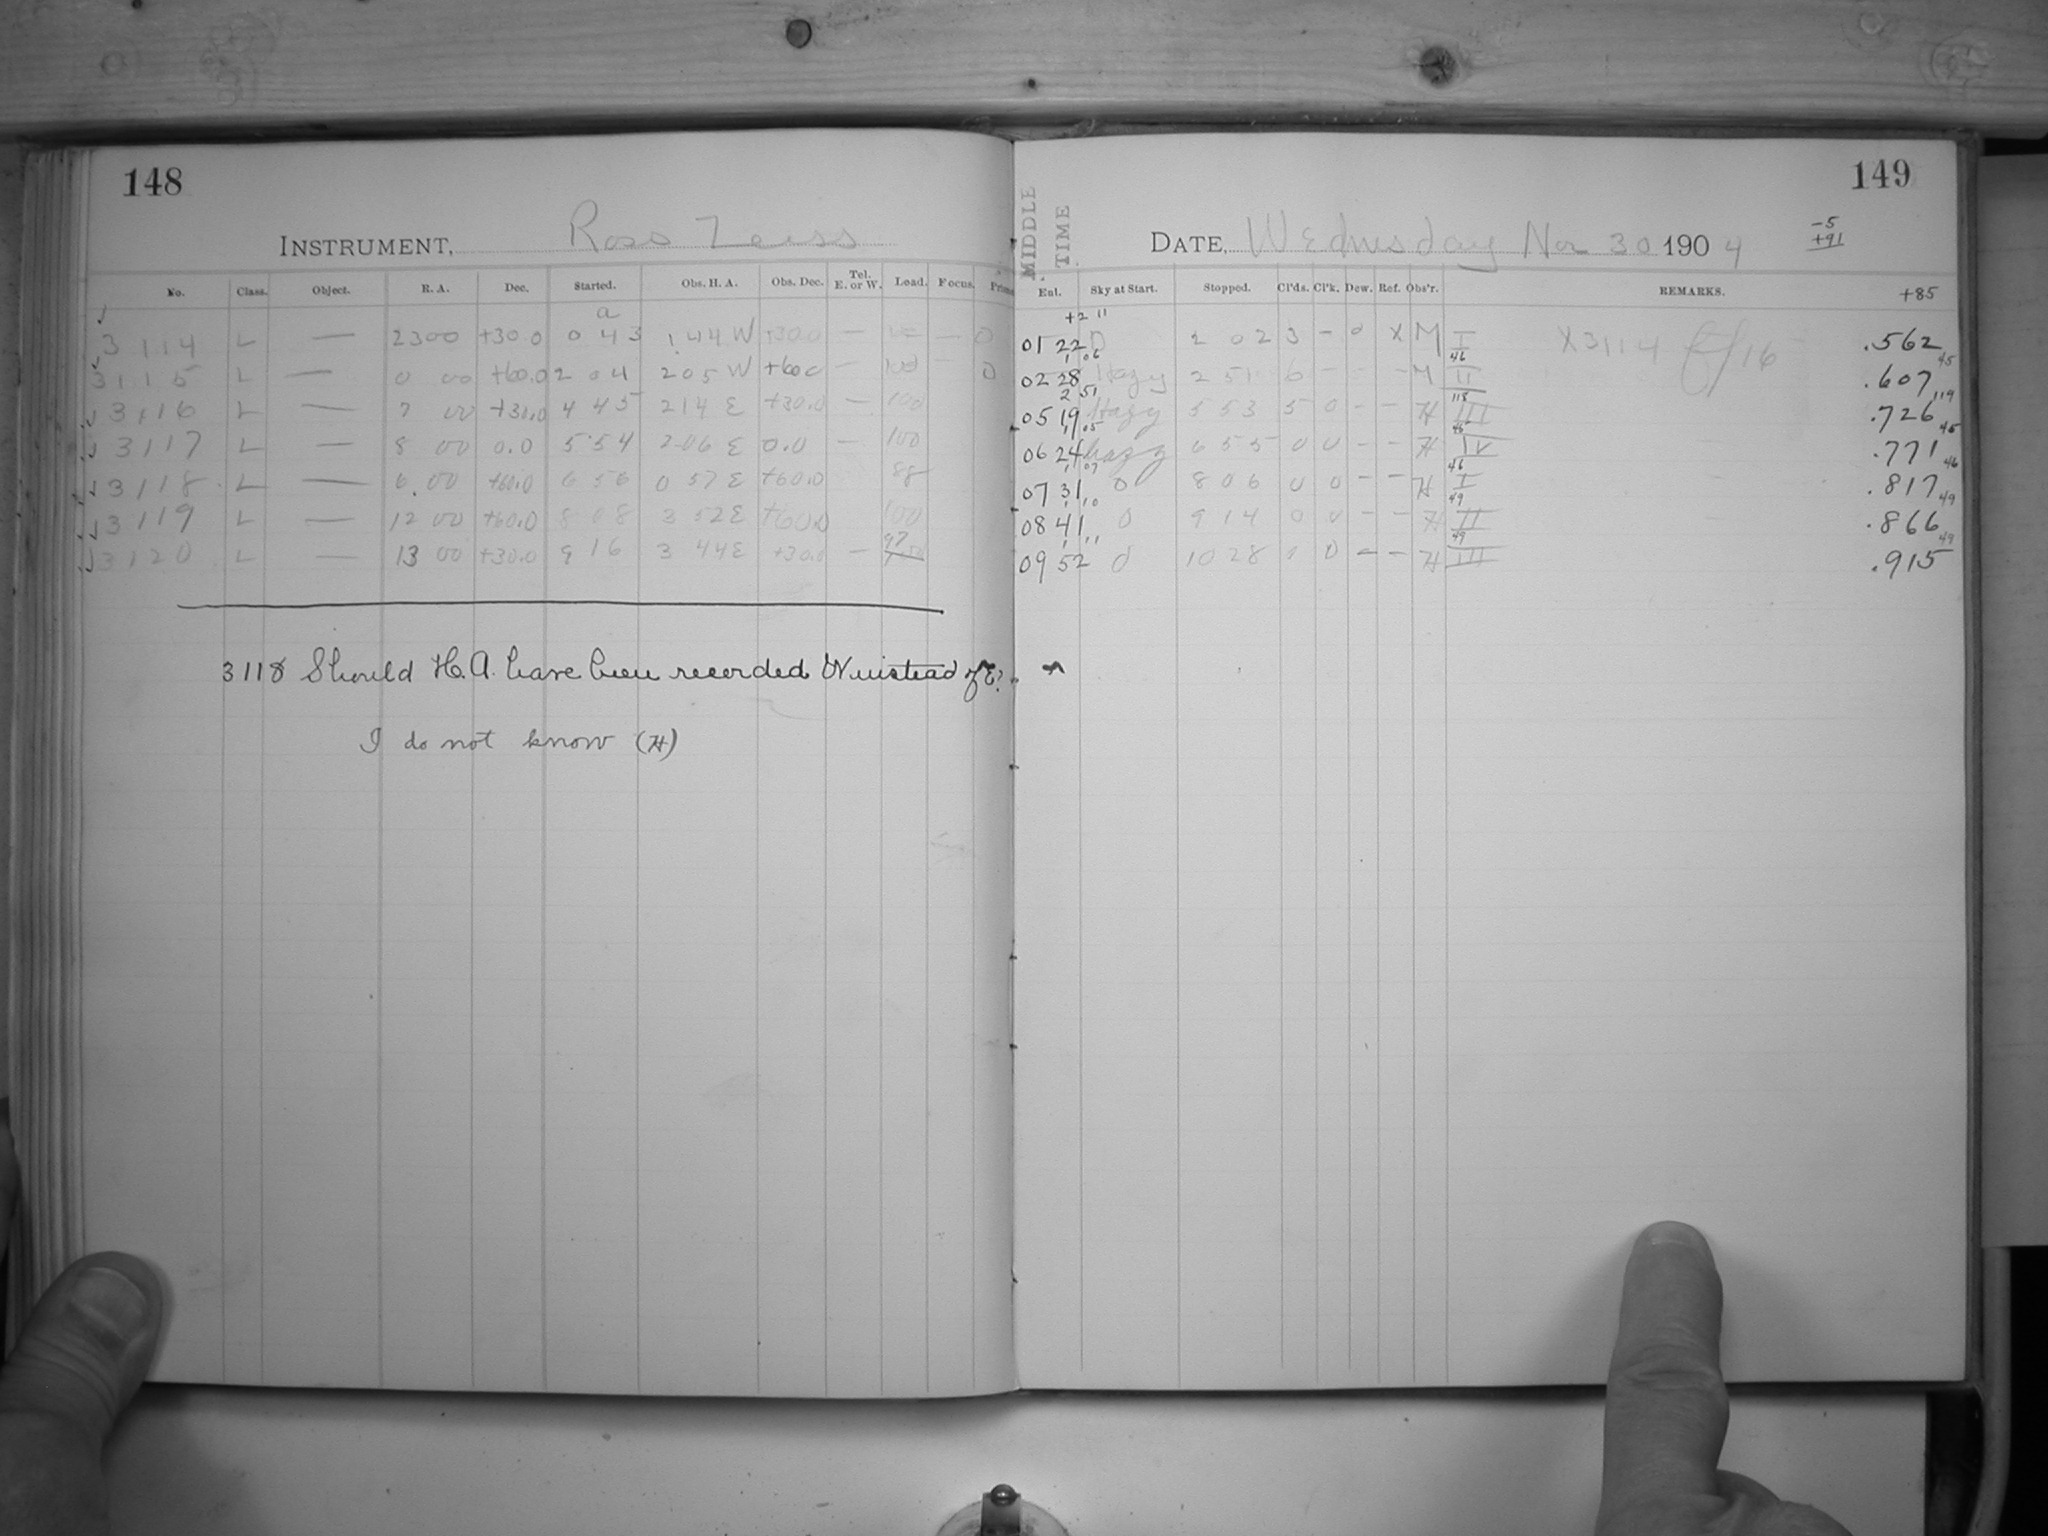 148
INSTRUMENT, Ross Zeiss
No. Class. Object. R. A. Dec. Started. Obs. H. A. Obs. Dec. Tel. E. or W. Load. Focus.
a
3114 L — 23 00 +30.0 0 43 1 44 W +30.0 — — 0
3115 L — 0 00 +60.0 2 04 2 05 W +60.0 — 100 0
3116 L — 7 00 +30.0 4 45 2 14 E +30.0 — 100
3117 L — 8 00 0.0 5 54 2 06 E 0.0 — 100
3118 L — 6 00 +60.0 6 56 0 57 E +60.0 88
3119 L — 12 00 +60.0 8 08 3 52 E +60.0 100
3120 L — 13 00 +30.0 9 16 3 44 E +30.0 — 97
3118 Should H.A. have been recorded W instead of E?
I do not know (H)
149
MIDDLE TIME
DATE, Wednesday Nov 30 1904
-5
+91
+85
Enl. Sky at Start. Stopped. Cl'ds. Cl'k. Dew. Ref. Obs'r. REMARKS.
+2 11
01 22 0 2 02 3 - 0 X M I X3114 16 .562
1 06 46 45
02 28 Hazy 2 51 6 - - - M II .607
2 51 118 119
05 19 Hazy 5 53 5 0 - - H III .726
1 05 45 45
06 24 hazy 6 55 0 0 - - H IV .771
1 07 46 46
07 31 0 8 06 0 0 - - H I .817
1 10 49 49
08 41 0 9 14 0 0 - - H II .866
1 11 49 49
09 52 0 10 28 0 - - H III .915